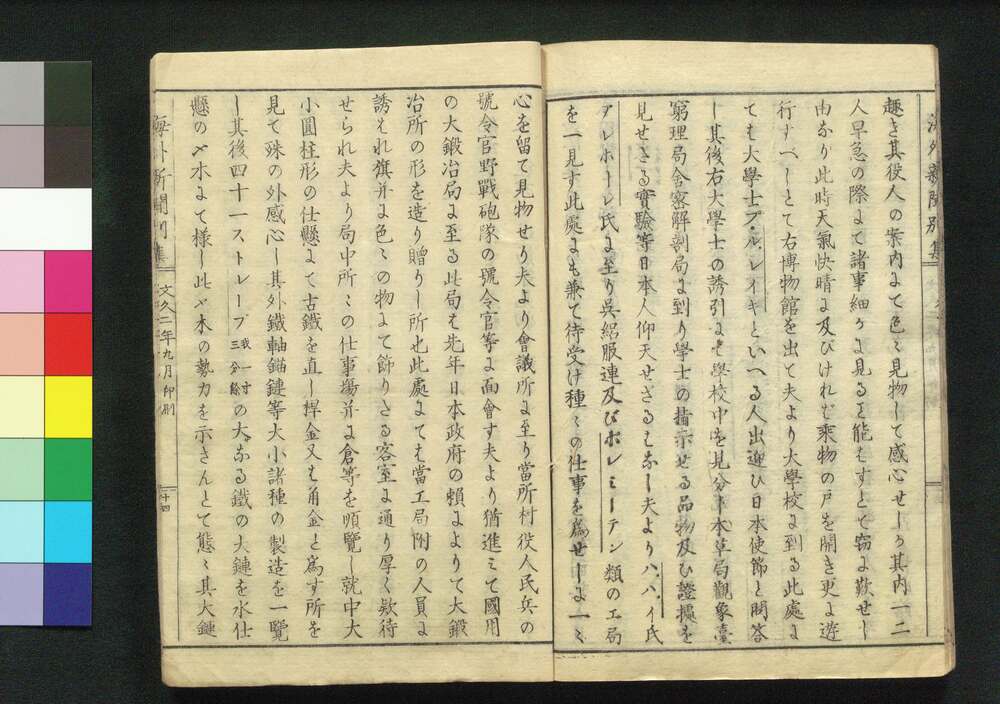 海外新聞別集
趣き其役人の案内にて色々見物して感心せしか其内一二
人早急の際にて諸事細かに見るを能はすとて窃に歎せし
由なり此時天氣快晴に及ひけれは乘物の戸を開き更に遊
行すへしとて右博物館を出て夫より大學校に到る此處に
ても大學士プ・ル・レイキといへる人出迎ひ日本使節と問答
し其後右大學士の誘引にて學校中を見分し本草局觀象臺
窮理局舍密解剖局に到り學士の指示せる品物及ひ證據を
見せさる實驗等日本人仰天せさるはなし夫よりハ,ハ,イ氏
アレホーレ氏に至り呉絽服連及ひポレミーテン類の工局
を一見す此處にも兼て待受け種々の仕事を爲せしに一々
心を留て見物せり夫より會議所に至り當所村役人民兵の
號令官野戰砲隊の號令官等に面會す夫より猶進みて國用
の大鍛冶局に至る此局は先年日本政府の賴によりて大鍛
冶所の形を造り贈りし所也此處にても當工局附の人員に
誘はれ旗并に色々の物にて飾りたる客室に通り厚く欵待
せられ夫より局中所々の仕事場并に倉等を順覽し就中大
小圓柱形の仕懸にて古鐵を直し捍金又は角金と爲す所を
見て殊の外感心し其外鐵軸錨鏈等大小諸種の製造を一覽
し其後四十一ストレープ我一寸三分餘の大なる鐵の大鏈を水仕
懸の〆木にて樣し此〆木の勢力を示さんとて態々其大鏈
海外新聞別集
文久二年九月印刷
二十四